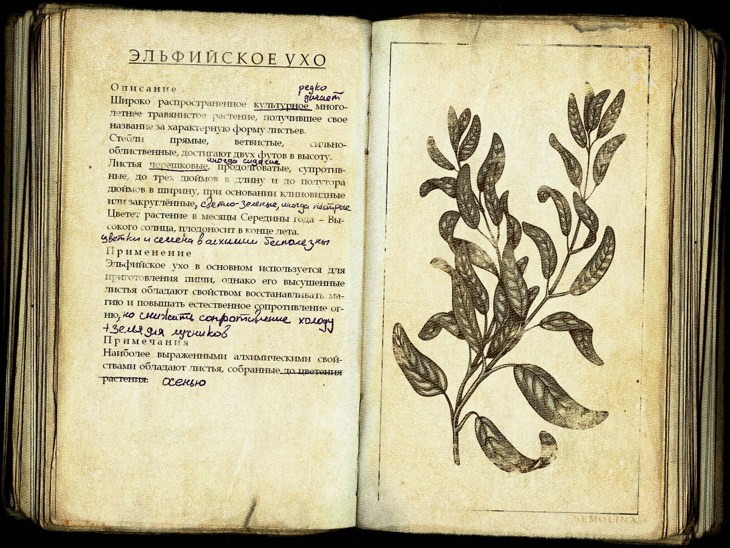 ЭЛЬФИЙСКОЕ УХО
Описание
редко
дичает
Широко распространенное культурное много-
летнее травянистое растение, получившее свое
название за характерную форму листьев.
Стебли прямые, ветвистые, сильно-
облиственные, достигают двух футов в высоту.
иногда сидячие
Листья черешковые, продолговатые, супротив-
ные, до трех дюймов в длину и до полутора
дюймов в ширину, при основании клиновидные
или закруглённые, светло-зеленые, иногда пестрые
Цветет растение в месяцы Середины года – Вы-
сокого солнца, плодоносит в конце лета.
цветки и семена в алхимии бесполезны
Применение
Эльфийское ухо в основном используется для
приготовления пищи, однако его высушенные
листья обладают свойством восстанавливать ма-
гию и повышать естественное сопротивление ог-
ню, но снижать сопротивление холоду
+зелья для лучников
Примечания
Наиболее выраженными алхимическими свой-
ствами обладают листья, собранные до цветения
растения. осенью
SEMOLINA